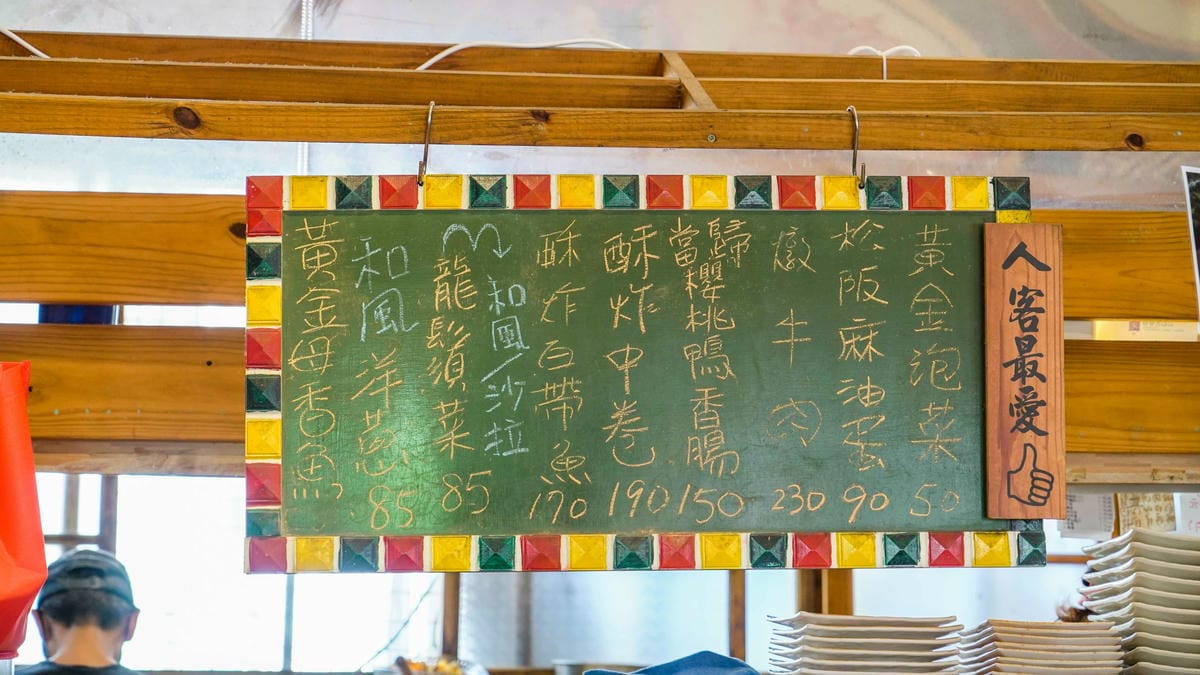 人客最愛
黃金泡菜 50
松阪麻油蛋 90
燉牛肉 230
當歸櫻桃鴨香腸 150
酥炸中卷 190
酥炸白帶魚 170
和風/沙拉
龍鬚菜 85
和風洋蔥 85
黃金母香魚